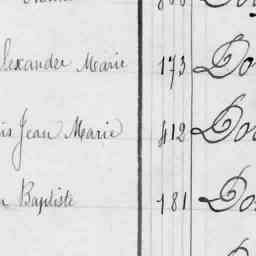 lexander Marie 173 Do
is Jean Marie 412 Do
n Baptiste 181 Do